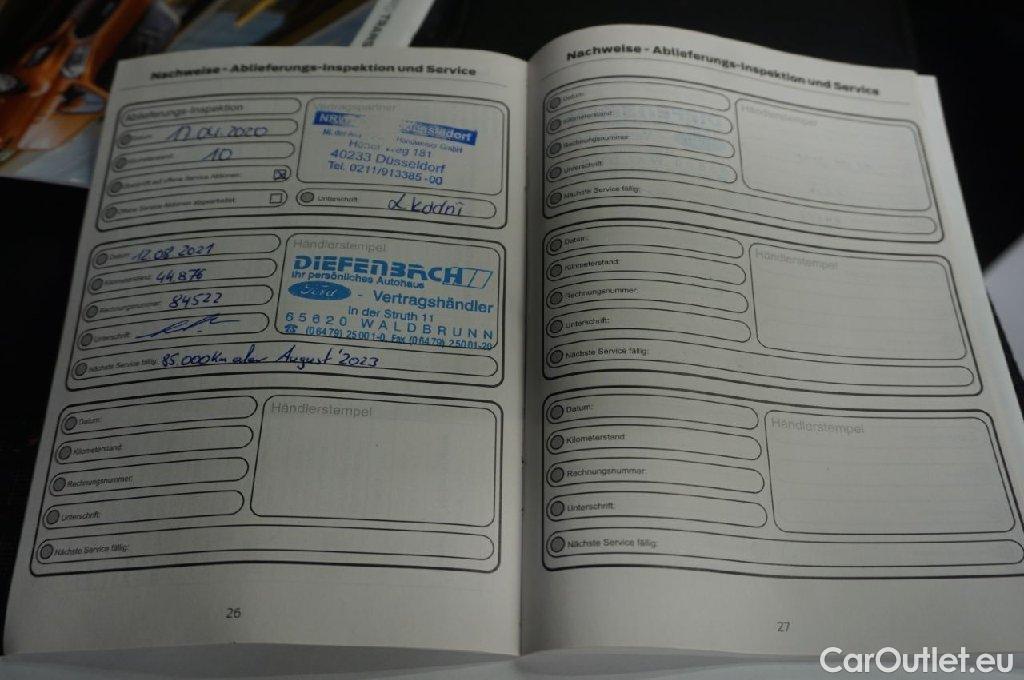 TRANS
Nachweise - Ablieferungs-Inspektion und Service
Ablieferungs-Inspektion
Datum: 17.04.2020
10
Offene Service Aktionen abgearbeitet:
Vertragspartner
NRW
Düsseldorf
Handwerker GmbH
Höher Weg 181
40233 Düsseldorf
Tel. 0211/913385-00
Unterschrift:
Datum: 12.08.2021
Kilometerstand: 44.876
Rechnungsnummer: 84522
Unterschrift:
Händlerstempel
DIEFENBACH
Ihr persönliches Autohaus
Ford - Vertragshändler
In der Struth 11
65620 WALDBRUNN
(06479) 25001-0, Fax (06479) 25001-20
Nächste Service fällig: 85.000Km oder August 2023
Datum:
Kilometerstand:
Rechnungsnummer:
Unterschrift:
Händlerstempel
Nächste Service fällig:
26
Nachweise - Ablieferungs-Inspektion und Service
Datum:
Kilometerstand:
Rechnungsnummer:
Unterschrift:
Händlerstempel
Nächste Service fällig:
Datum:
Kilometerstand:
Rechnungsnummer:
Unterschrift:
Händlerstempel
Nächste Service fällig:
Datum:
Kilometerstand:
Rechnungsnummer:
Unterschrift:
Händlerstempel
Nächste Service fällig:
27
CarOutlet.eu